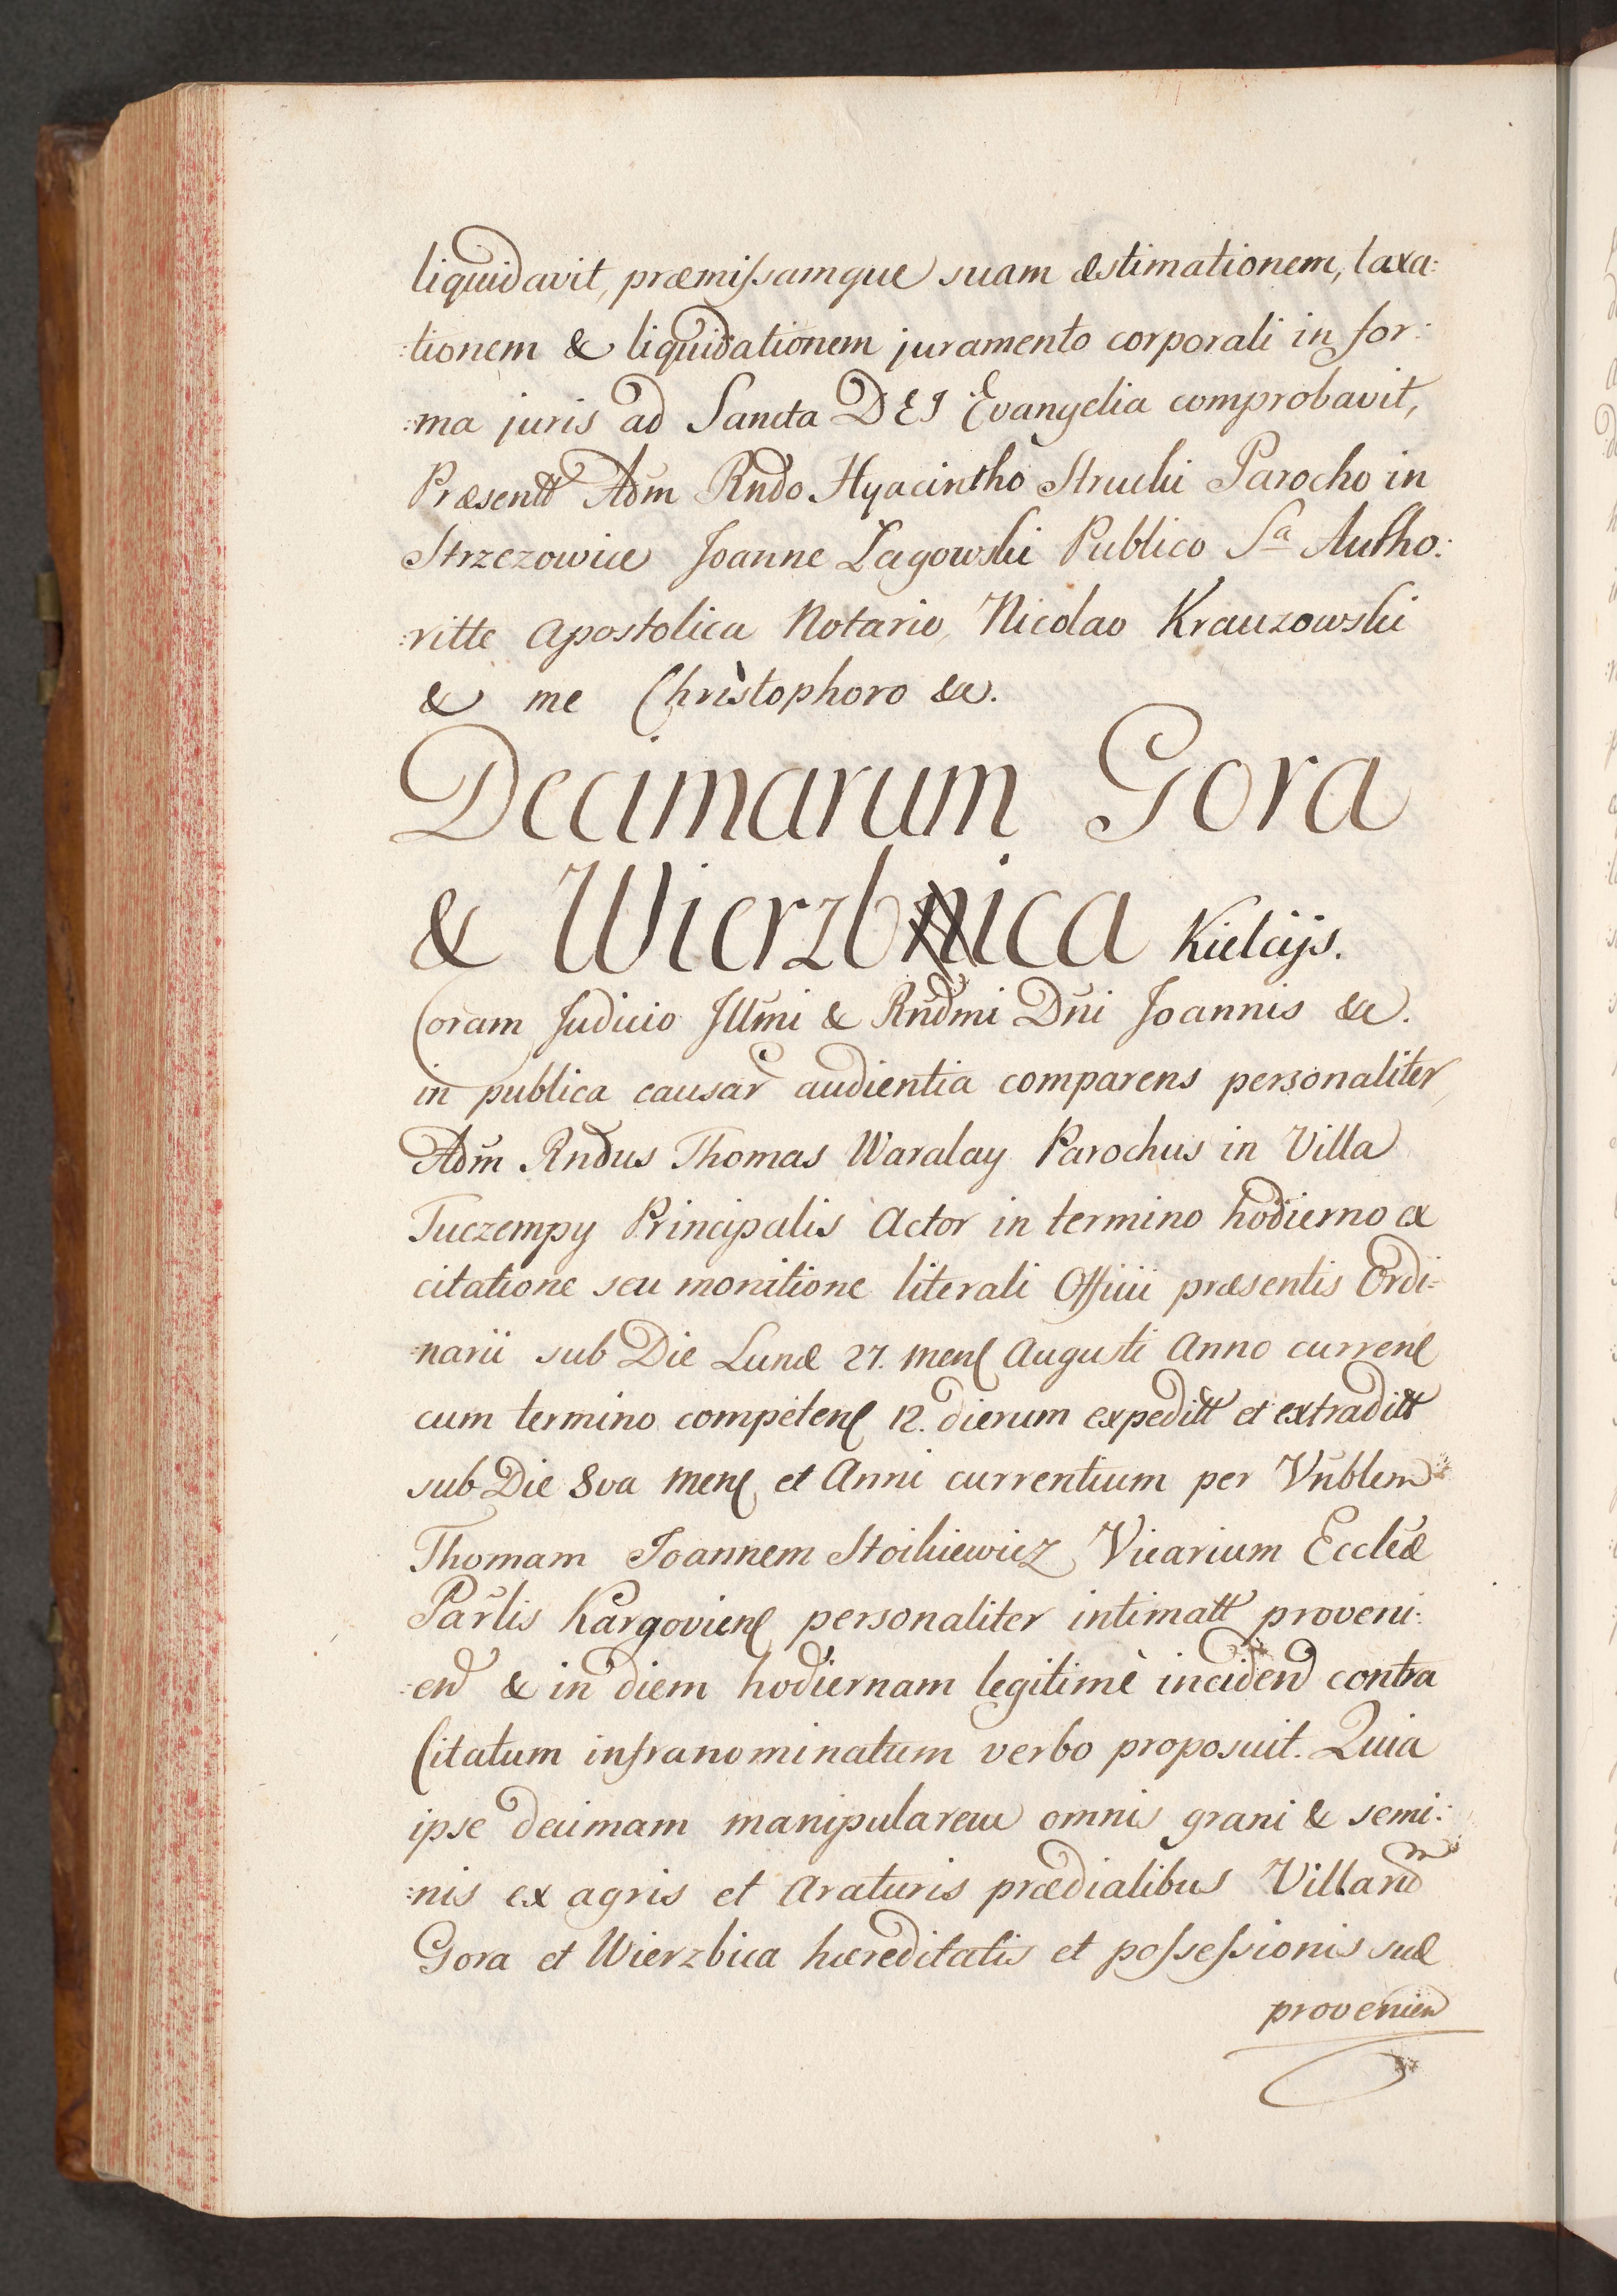 liquidavit, præmissamque suam æstimationem, taxa:
:tionem & liquidationem juramento corporali in for:
:ma juris ad Sancta DEI Evangelia comprobavit,
Præsentt Adm Rndo Hyacintho Strucki Parocho in
Strzezowice Joanne Lagowski Publico Sa Autho:
:ritte Apostolica Notario, Nicolao Krauzowski
& me Christophoro &c.
Decimarum Gora
& Wierzbnica Kielcijs.
Coram Judicio Illmi & Rndmi Dni Joannis &c.
in publica causar audientia comparens personaliter,
Adm Rndus Thomas Waralay Parochus in Villa
Tuczempy Principalis Actor in termino hodierno ex
citatione seu monitione literali Officii præsentis Ordi=
=narii sub Die Lunæ 27. Mens Augusti Anno currens
cum termino competens 12. dierum expeditt et extraditt
sub Die 8va Mens et Anni currentium per Vnblem
Thomam Joannem Stoikiewicz Vicarium Eccleæ
Parlis Kargoviens personaliter intimatt proveni:
:end & in diem hodiernam legitimè incidend contra
Citatum infranominatum verbo proposuit. Quia
ipse decimam manipularem omnis grani & semi:
:nis ex agris et Araturis prædialibus Villarum
Gora et Wierzbica hæreditatis et possessionis suæ
provenien